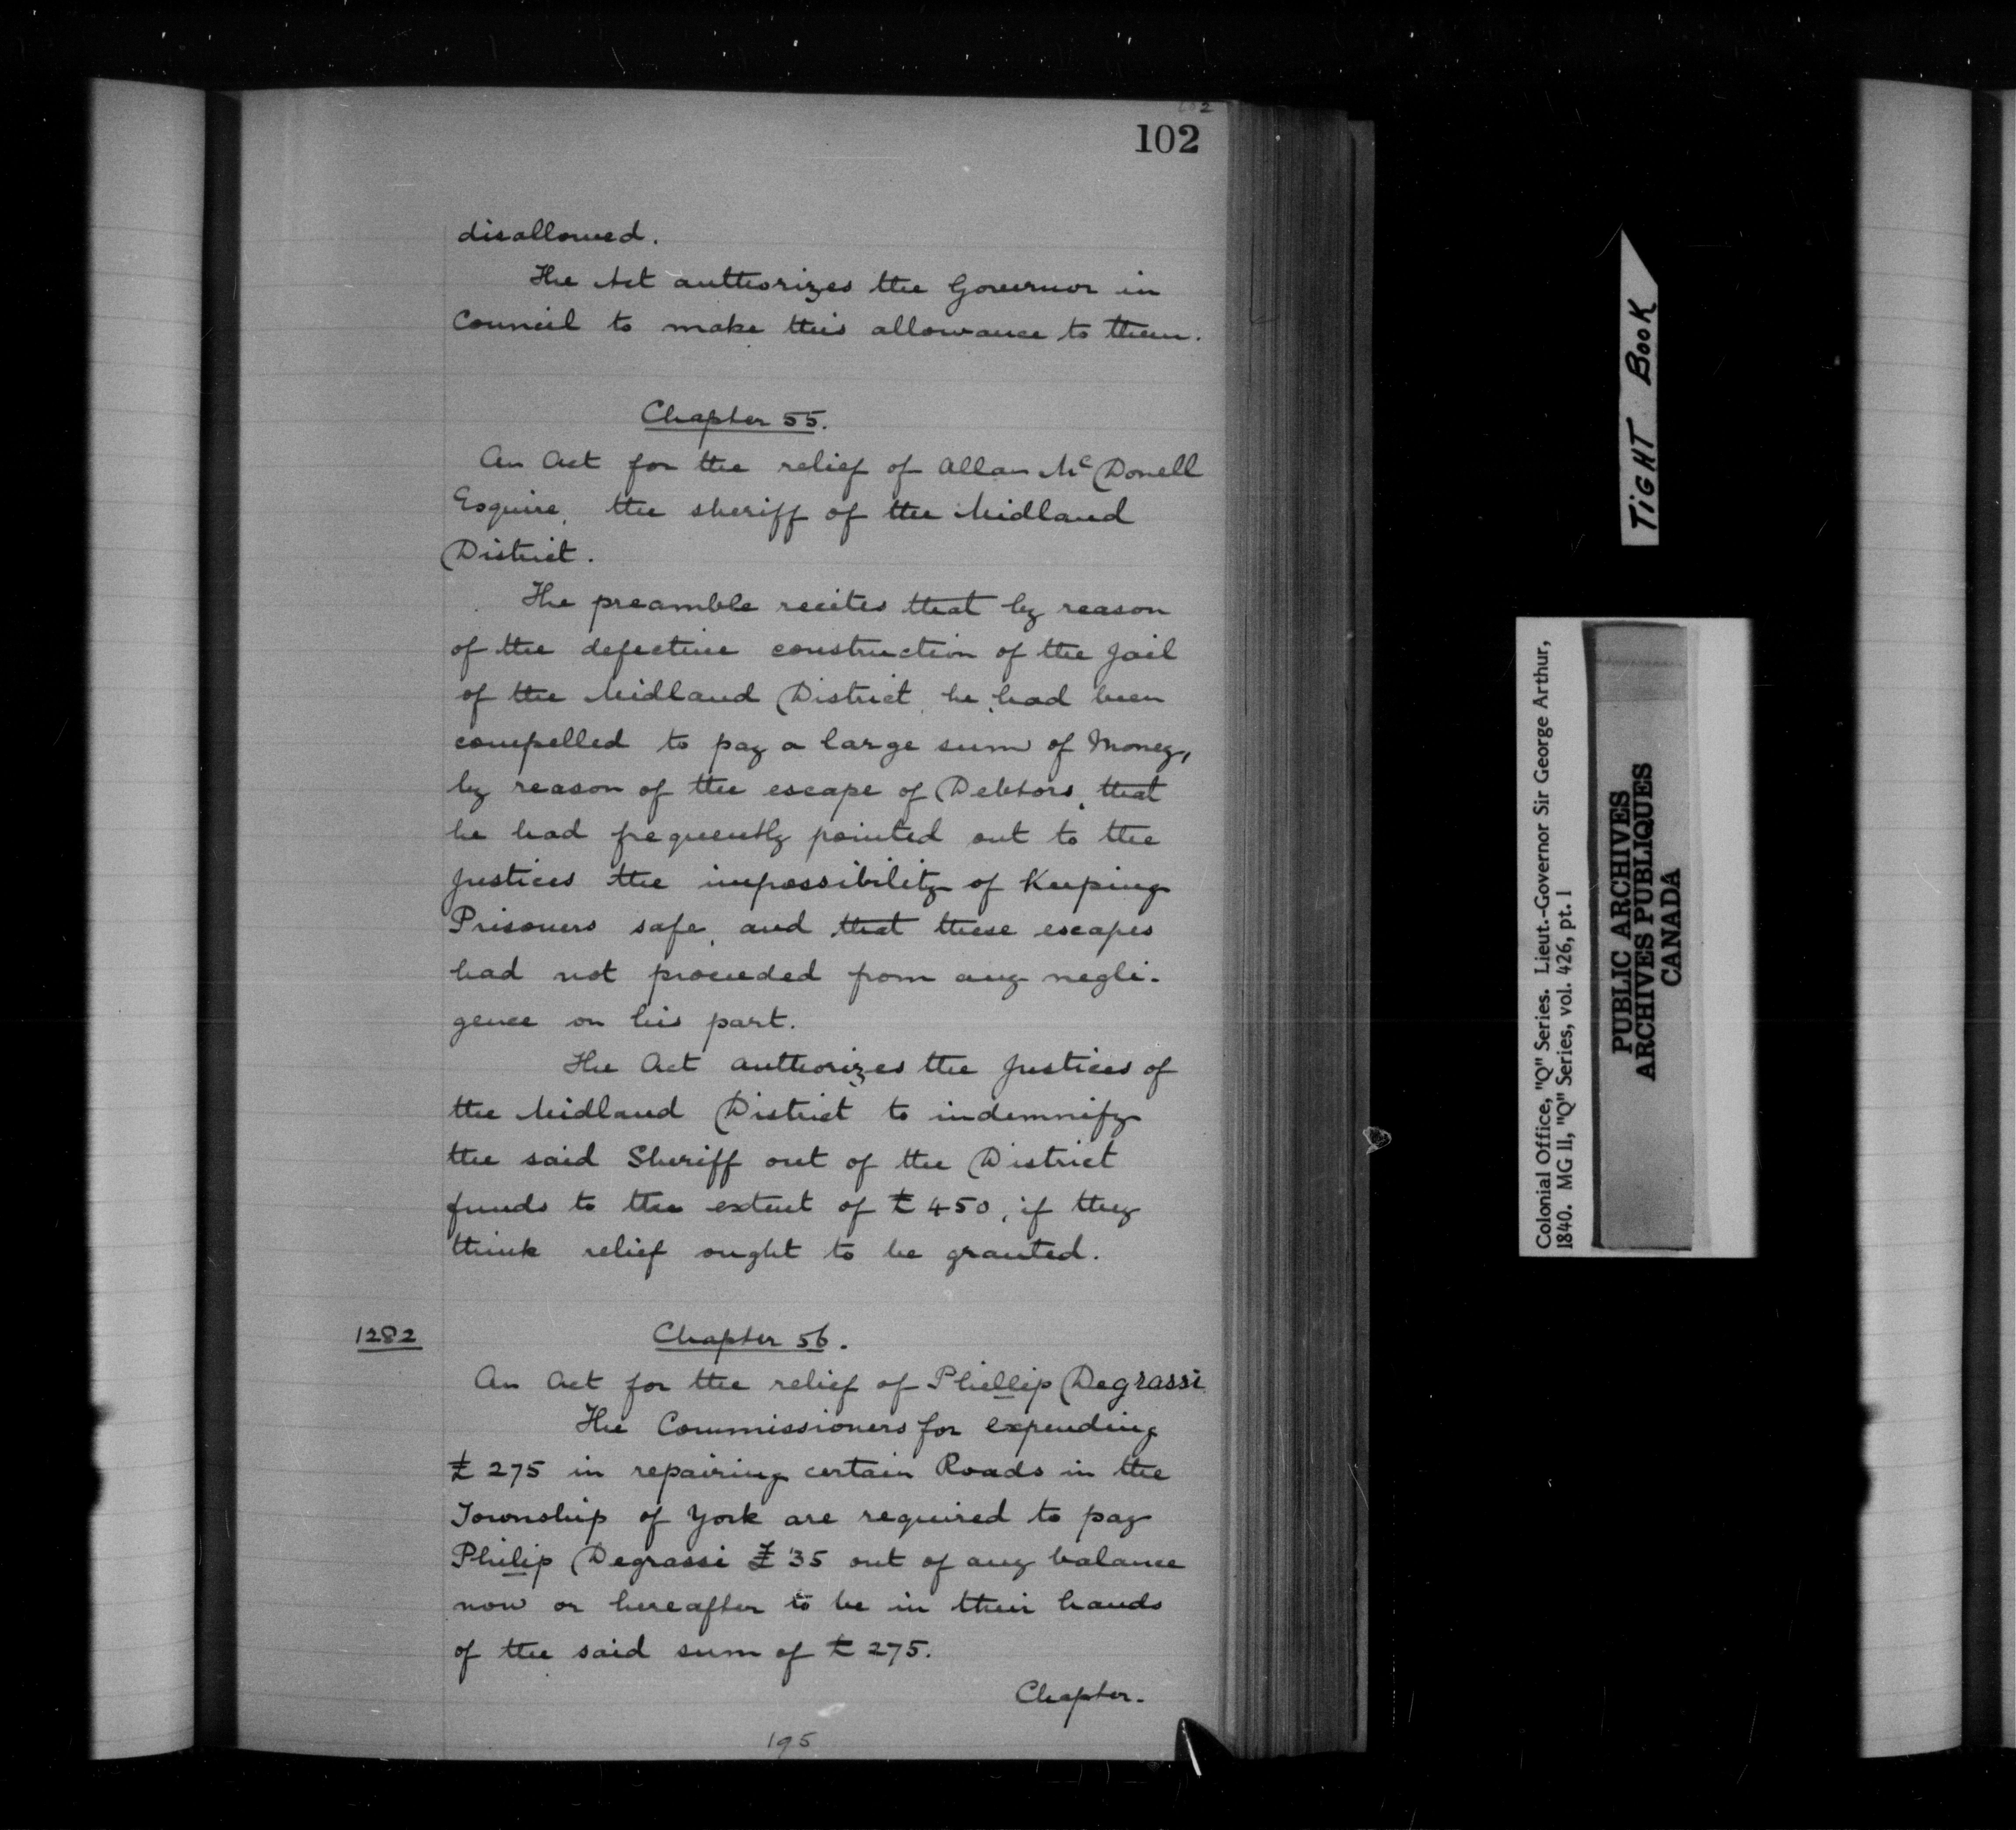 102
disallowed.
The Act authorizes the Governor in
Council to make this allowance to them.
Chapter 55.
An Act for the relief of Allan Mc Donell
Esquire, the sheriff of the Midland
District.
The preamble recites that by reason
of the defective construction of the Jail
of the Midland District, he had been
compelled to pay a large sum of Money,
by reason of the escape of Debtors, that
he had frequently pointed out to the
Justices the impossibility of Keeping
Prisoners safe, and that these escapes
had not proceeded from any negli-
gence on his part.
The Act authorizes the Justices of
the Midland District to indemnify
the said Sheriff out of the District
funds to the extent of £450, if they
think relief ought to be granted.
1282
Chapter 56.
An Act for the relief of Phillip Degrassi
The Commissioners for expending
£275 in repairing certain Roads in the
Township of York are required to pay
Philip Degrassi £35 out of any balance
now or hereafter to be in their hands
of the said sum of £275.
Chapter.
195
TIGHT BOOK
Colonial Office, "Q" Series. Lieut.-Governor Sir George Arthur,
1840. MG 11, "Q" Series, vol. 426, pt. 1
PUBLIC ARCHIVES
ARCHIVES PUBLIQUES
CANADA